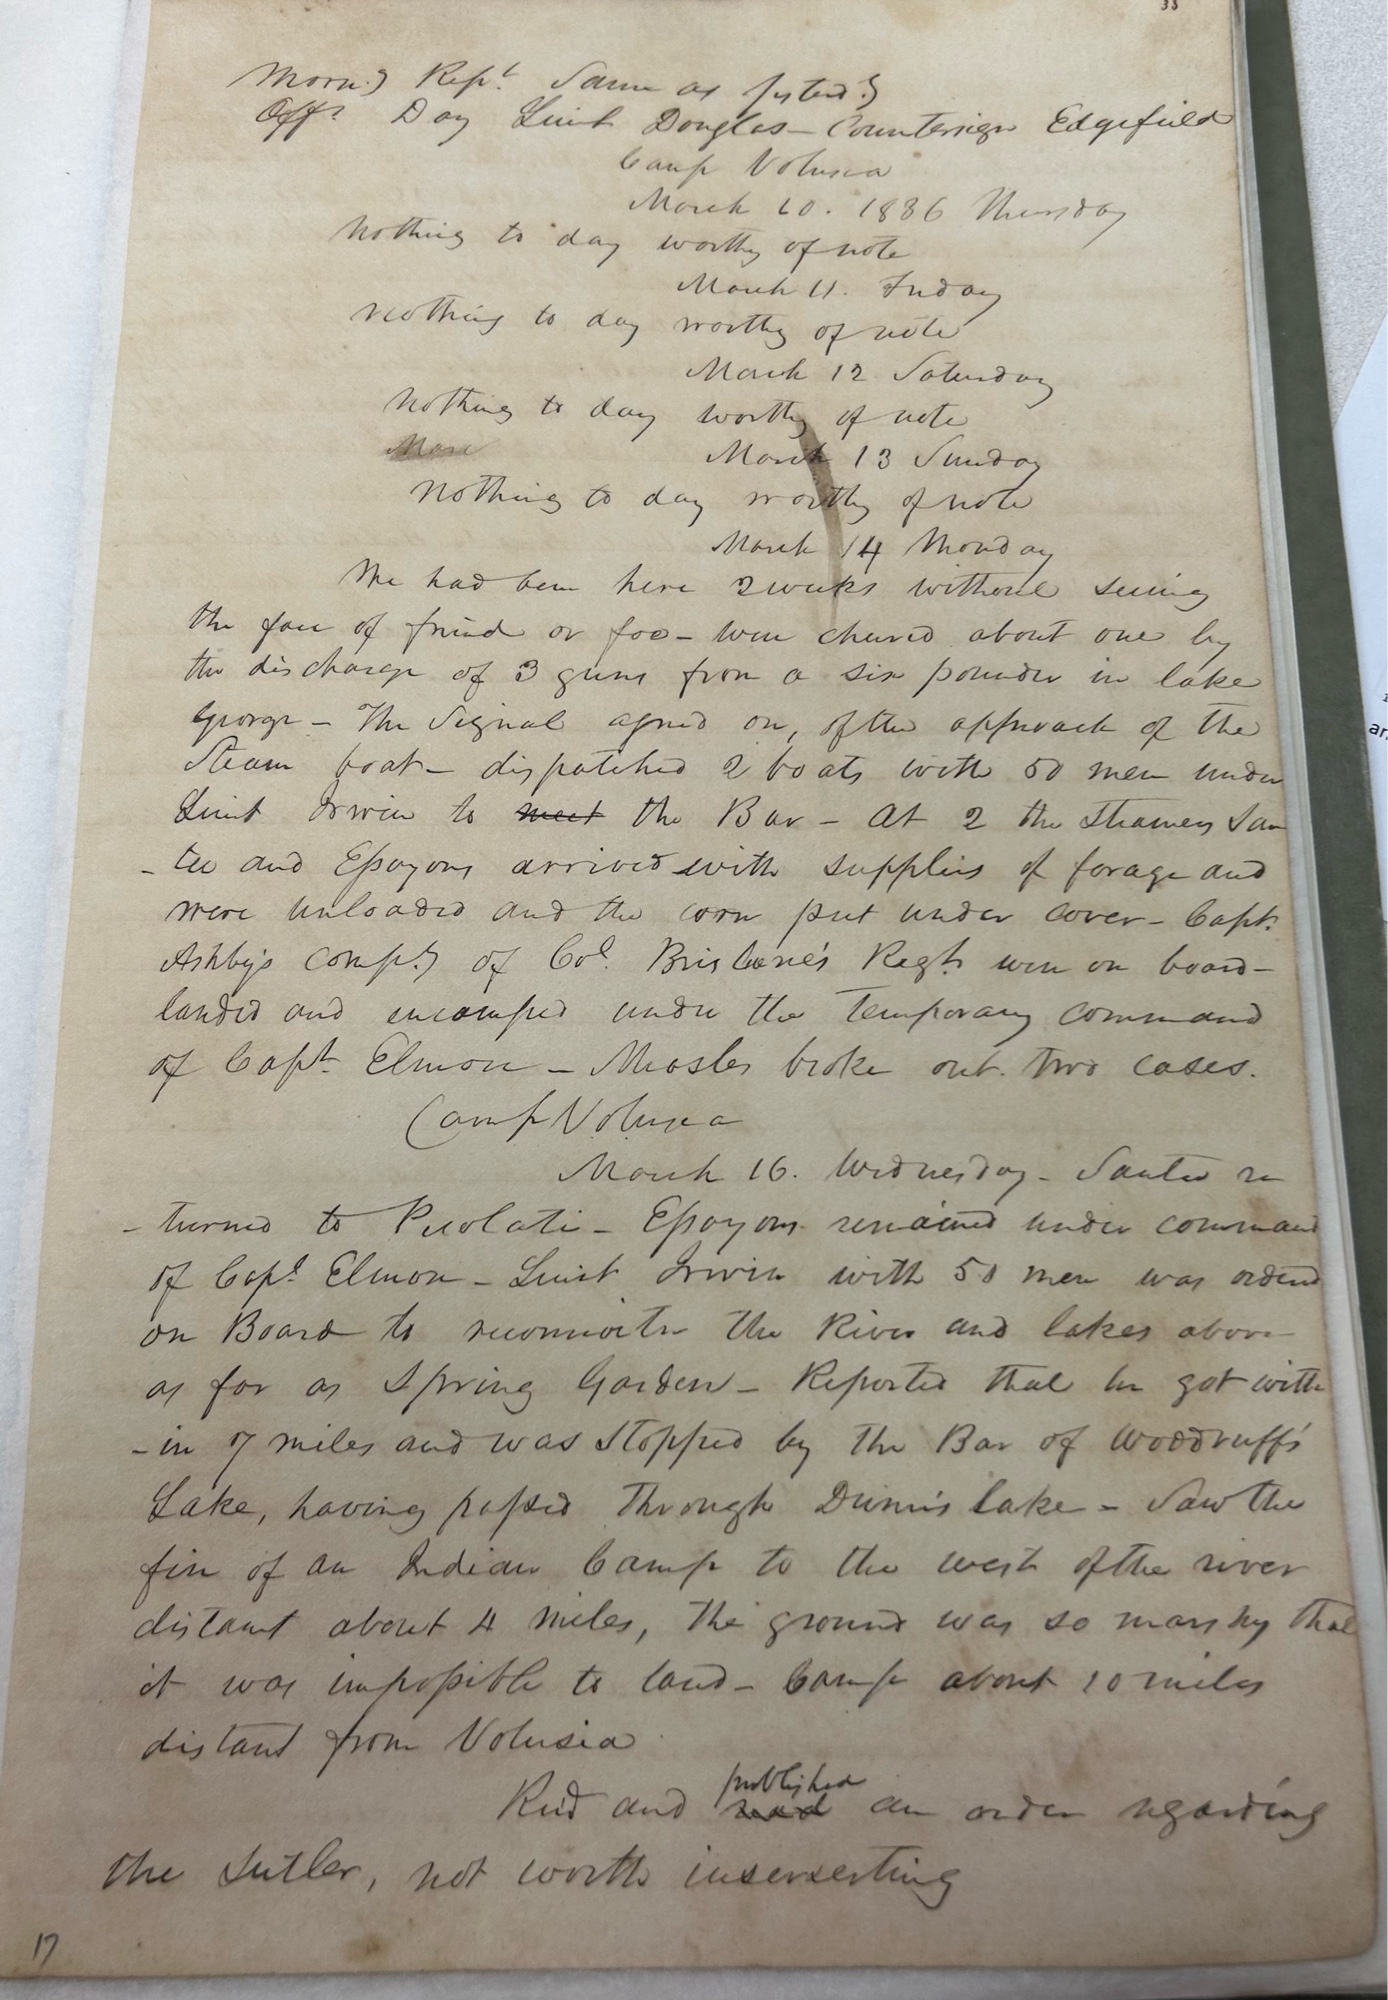 33
Morng Rept Same as yesterdy
Offr Day Lieut Douglas - Countersign Edgefield
Camp Volusia
March 10. 1836 Thursday
Nothing to day worthy of note
March 11. Friday
Nothing to day worthy of note
March 12 Saturday
Nothing to day worthy of note
Marc
March 13 Sunday
Nothing to day worthy of note
March 14 Monday
We had been here 2 weeks without seeing
the face of friend or foe - were cheered about one by
the discharge of 3 guns from a six pounder in lake
George - The Signal agreed on, of the approach of the
Steam boat - dispatched 2 boats with 50 men under
Lieut Irwin to meet the Bar - At 2 the Steamers San
-tee and Essayons arrived with supplies of forage and
were unloaded and the corn put under cover - Capt.
Ashby's Compy of Col. Brisbane's Regt. were on board -
landed and encamped under the temporary command
of Capt Elmore - Measles broke out. two cases.
Camp Volusia
March 16. Wednesday - Santee re
-turned to Picolati - Essayons remained under command
of Capt Elmore - Lieut Irwin with 50 men was ordered
on Board to reconnoitre the River and lakes above
as far as Spring Garden - Reported that he got with
-in 7 miles and was stopped by the Bar of Woodruff's
Lake, having passed through Dunn's lake - Saw the
fire of an Indian Camp to the west of the river
distant about 4 miles, the ground was so marshy that
it was impossible to land - Camp about 10 miles
distant from Volusia
published
Recd and read an order regarding
the Sutler, not worth inserserting
17